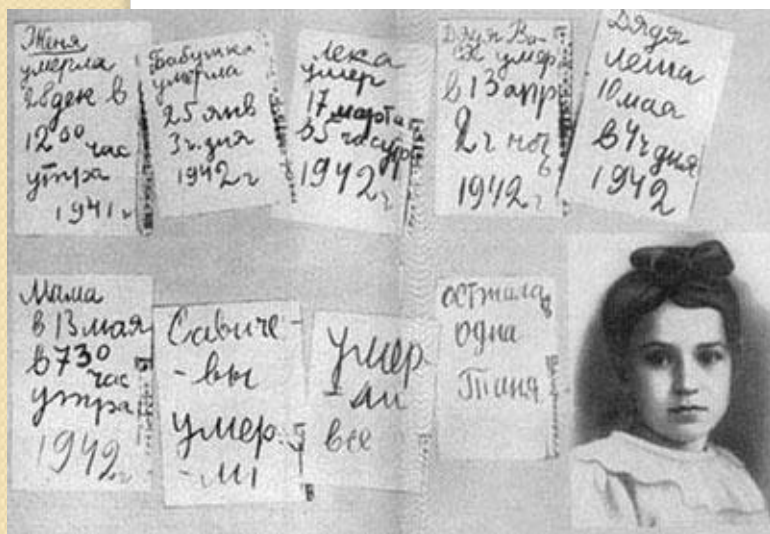 Женя
умерла
28 дек в
12 00 час
утра
1941 г
Бабушка
умерла
25 янв
3 ч. дня
1942 г
Лека
умер
17 марта
в 5 час утр
1942 г
Дядя Ва
ся умер
в 13 апр
2 ч ноч
1942 г
Дядя
Леша
10 мая
в 4 ч дня
1942
Мама
в 13 мая
в 7 30
час
утра
1942 г
Савиче-
-вы
умер
-ли
умер
-ли
все
осталась
одна
Таня